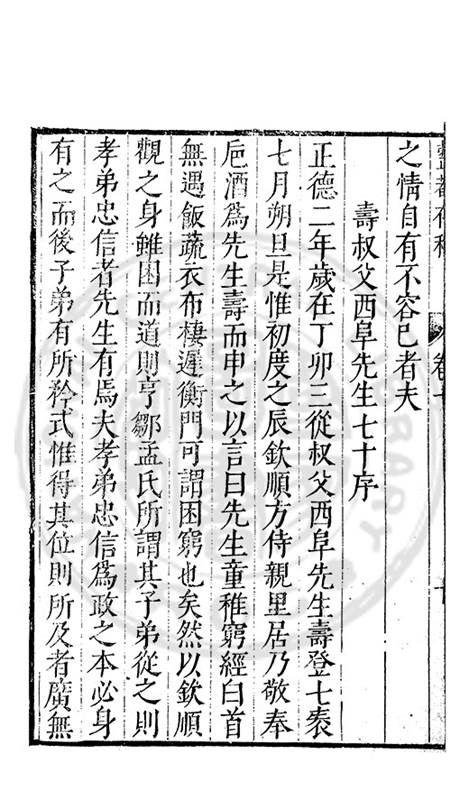 之情自有不容已者夫
壽叔父西阜先生七十序
正德二年歲在丁卯三從叔父西阜先生壽登七袠
七月朔旦是惟初度之辰欽順方侍親里居乃敬奉
巵酒為先生壽而申之以言曰先生童稚窮經白首
無遇飯蔬衣布棲遲衡門可謂困窮也矣然以欽順
觀之身雖困而道則亨鄒孟氏所謂其子弟從之則
孝弟忠信者先生有焉夫孝弟忠信為政之本必身
有之而後子弟有所矜式惟得其位則所及者廣無